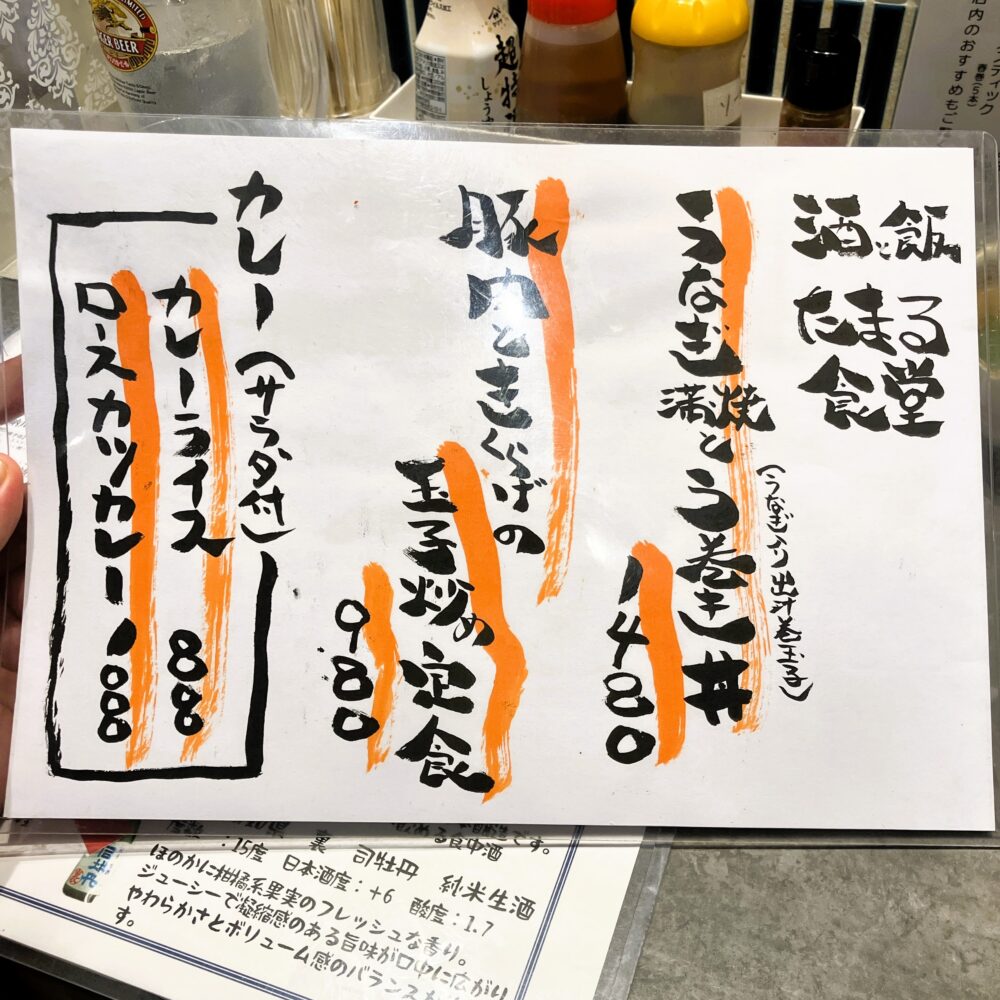 酒と飯
たまる
食堂
うなぎ蒲焼とう巻き丼
(うなぎ入り出汁巻玉子)
1480
豚肉ときくらげの
玉子炒め定食
980
カレー(サラダ付)
カレーライス 880
ロースカツカレー 1080
BEER
超特
しょうゆ
ティック
春巻(5本)
店内のおすすめもご
る食中酒
です。
裏 司牡丹 純米生酒
:15度 日本酒度:+6 酸度:1.7
ほのかに柑橘系果実のフレッシュな香り。
ジューシーで凝縮感のある旨味が口中に広がり
やわらかさとボリューム感のバランス
す。